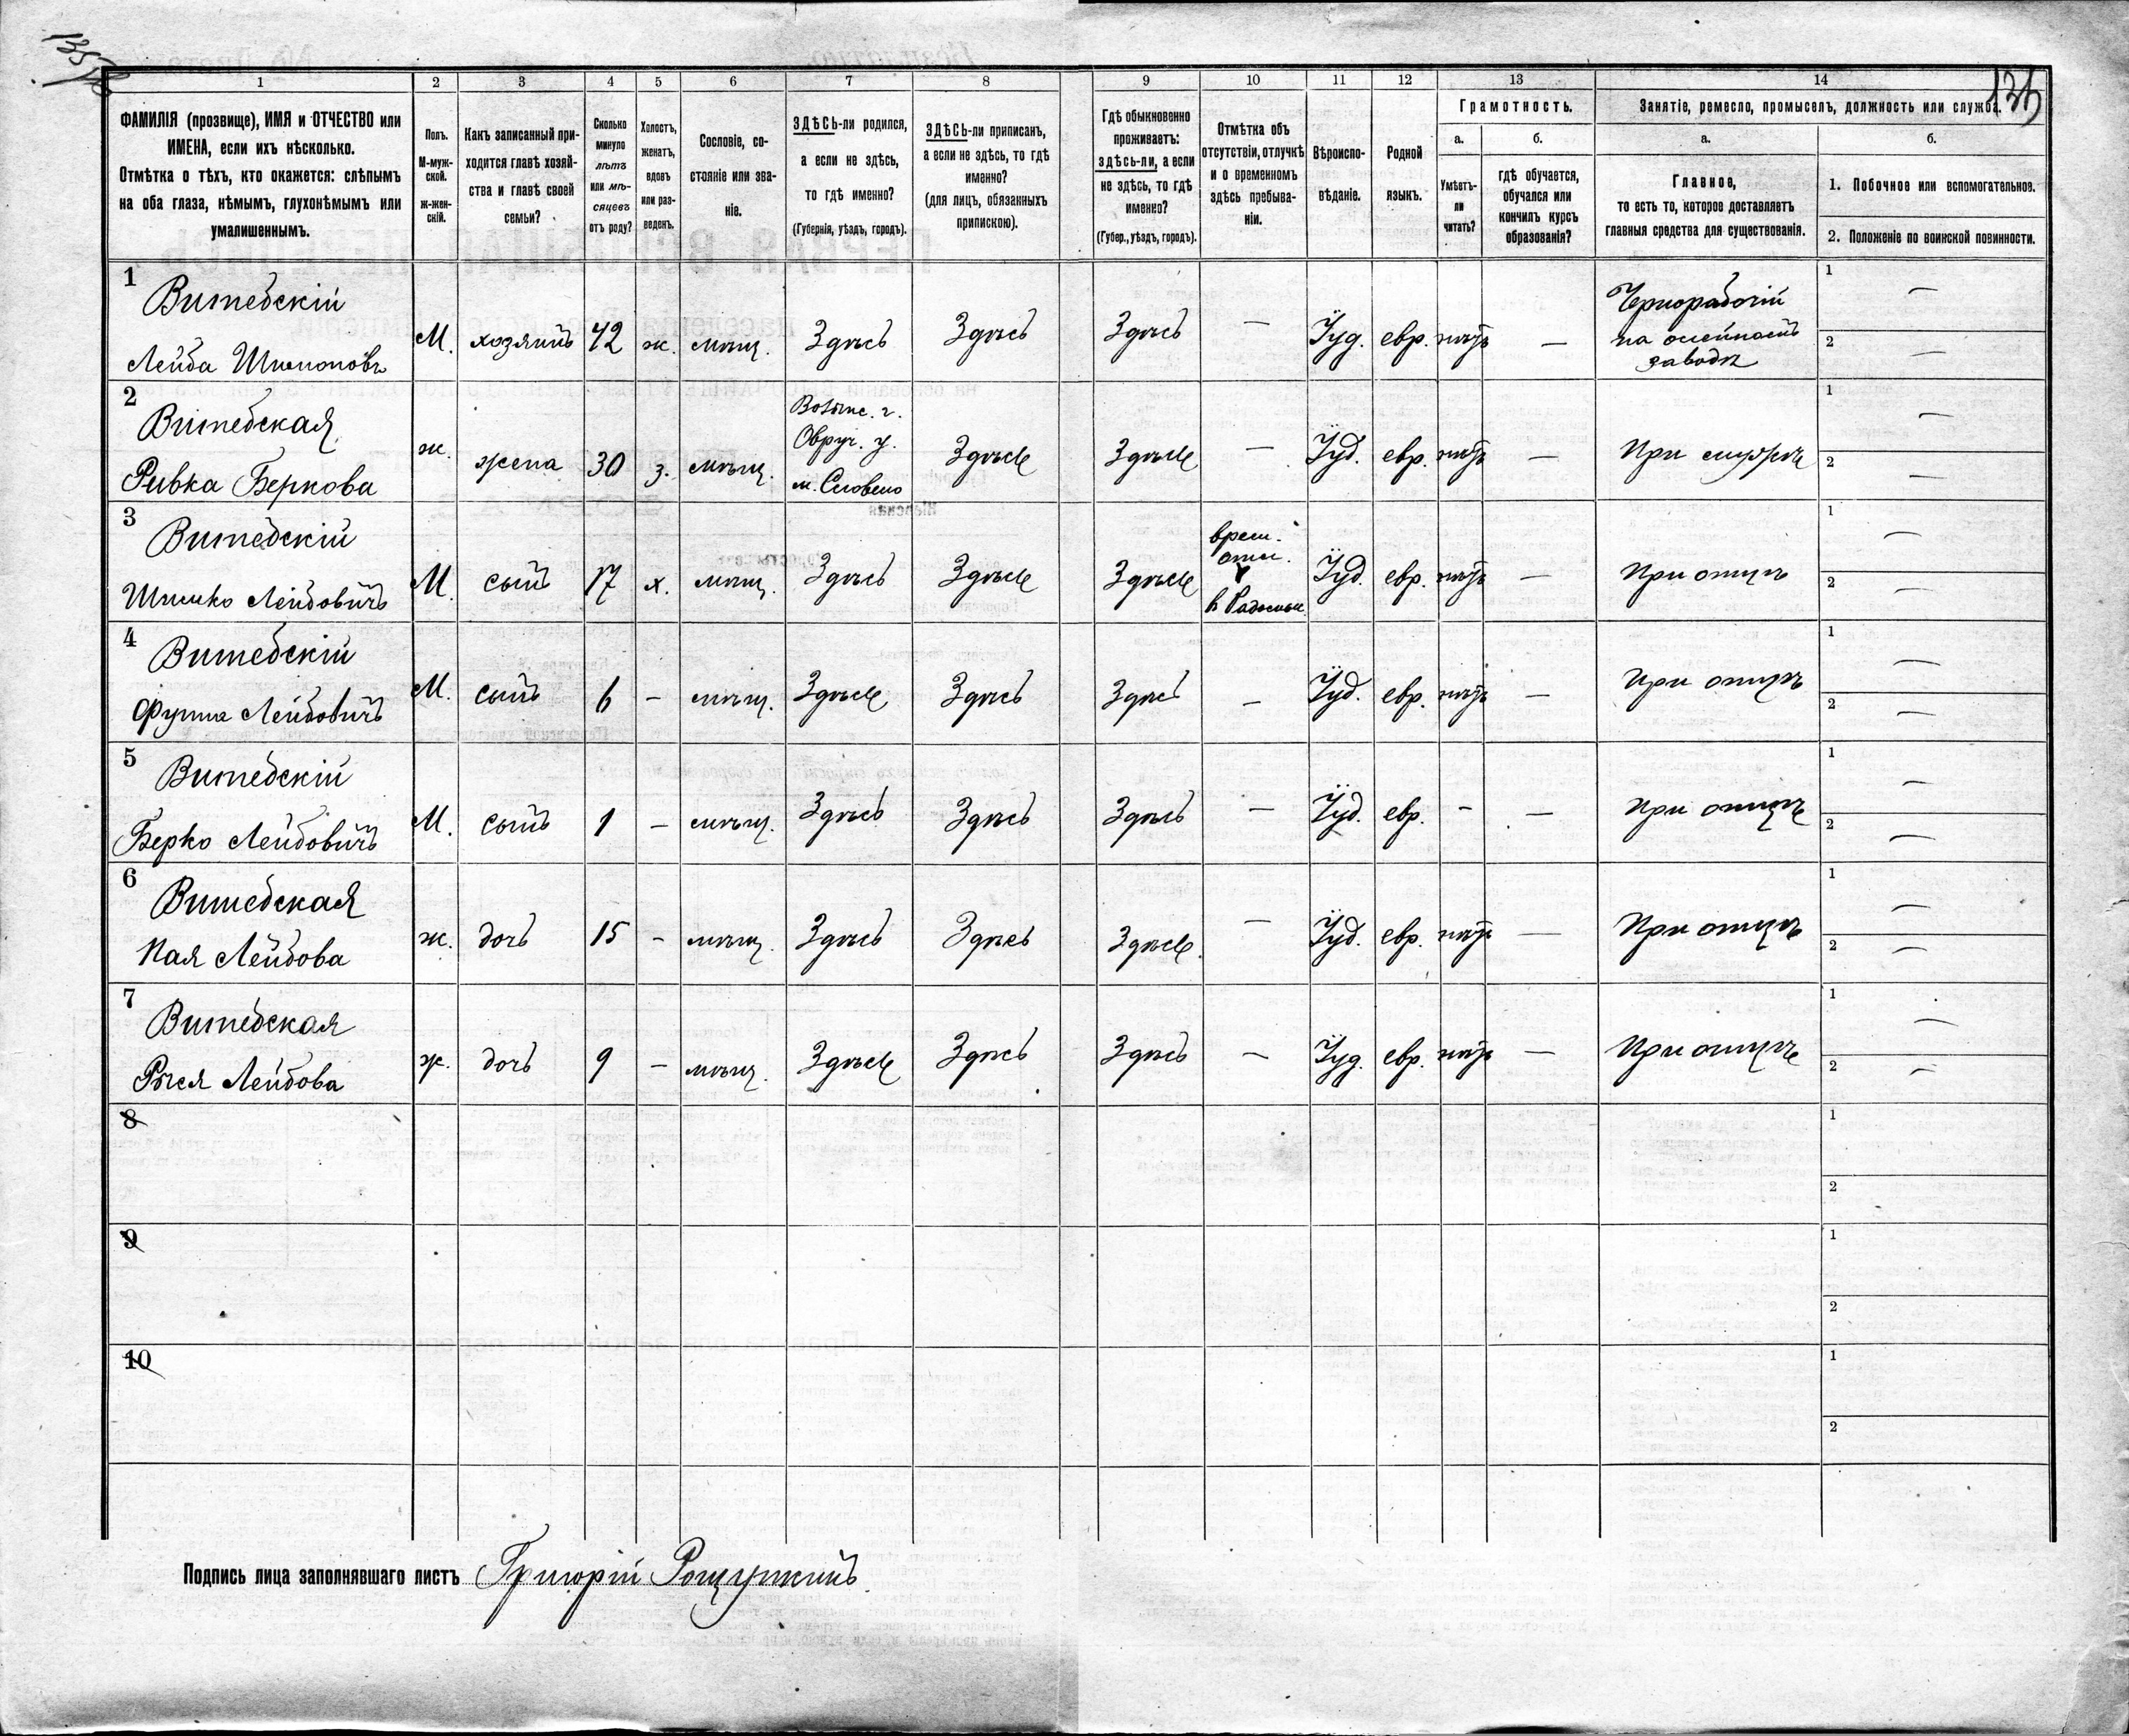 135об
135
1 2 3 4 5 6 7 8 9 10 11 12 13 14
ФАМИЛІЯ (прозвище), ИМЯ и ОТЧЕСТВО или
ИМЕНА, если ихъ нѣсколько.
Отмѣтка о тѣхъ, кто окажется: слѣпымъ
на оба глаза, нѣмымъ, глухонѣмымъ или
умалишеннымъ.
Полъ.
М-муж-
ской.
ж-жен-
скій.
Какъ записанный при-
ходится главѣ хозяй-
ства и главѣ своей
семьи?
Сколько
минуло
лѣтъ
или мѣ-
сяцевъ
отъ роду?
Холостъ,
женатъ,
вдовъ
или раз-
веденъ.
Сословіе, со-
стояніе или зва-
ніе.
ЗДѢСЬ-ли родился,
а если не здѣсь,
то гдѣ именно?
(Губернія, уѣздъ, городъ).
ЗДѢСЬ-ли приписанъ,
а если не здѣсь, то гдѣ
именно?
(для лицъ, обязанныхъ
припискою).
Гдѣ обыкновенно
проживаетъ:
здѣсь-ли, а если
не здѣсь, то гдѣ
именно?
(Губер., уѣздъ, городъ).
Отмѣтка объ
отсутствіи, отлучкѣ
и о временномъ
здѣсь пребыва-
ніи.
Вѣроиспо-
вѣданіе.
Родной
языкъ.
Грамотность.
а.
Умѣетъ-
ли
читать?
б.
гдѣ обучается,
обучался или
кончилъ курсъ
образованія?
Занятіе, ремесло, промыселъ, должность или служба.
а.
Главное,
то есть то, которое доставляетъ
главныя средства для существованія.
б.
1. Побочное или вспомогательное.
2. Положеніе по воинской повинности.
1 Витебскій
Лейба Шмоновъ М. хозяинъ 42 ж. мѣщ. Здѣсь Здѣсь Здѣсь — Іуд. евр. нѣтъ — Чернорабочій
заводѣ 1 — 2 —
2 Витебская
Ривка Беркова ж. жена 30 з. мѣщ. Волынс. г.
Овруч. у.
м. Словечно Здѣсь Здѣсь — Іуд. евр. нѣтъ — При мужѣ 1 — 2 —
3 Витебскій
Шмуко Лейбовичъ М. сынъ 17 х. мѣщ. Здѣсь Здѣсь Здѣсь врем.
отл.
в Радомысл Іуд. евр. нѣтъ — При отцѣ 1 — 2 —
4 Витебскій
Лейбовичъ М. сынъ 6 — мѣщ. Здѣсь Здѣсь Здѣсь — Іуд. евр. нѣтъ — При отцѣ 1 — 2 —
5 Витебскій
Берко Лейбовичъ М. сынъ 1 — мѣщ. Здѣсь Здѣсь Здѣсь — Іуд. евр. — — При отцѣ 1 — 2 —
6 Витебская
Пая Лейбова ж. дочь 15 — мѣщ. Здѣсь Здѣсь Здѣсь — Іуд. евр. нѣтъ — При отцѣ 1 — 2 —
7 Витебская
Рыся Лейбова ж. дочь 9 — мѣщ. Здѣсь Здѣсь Здѣсь — Іуд. евр. нѣтъ — При отцѣ 1 — 2 —
8 1 2
9 1 2
10 1 2
Подпись лица заполнявшаго листъ Григорій Рощупкинъ